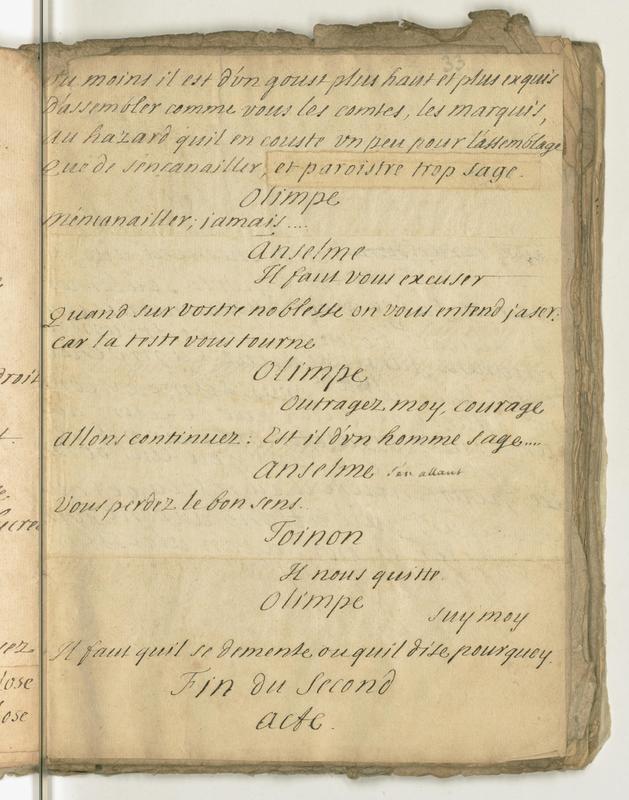 33
au moins il est d'vn goust plus haut et plus exquis
D'assembler comme vous les comtes, les marquis,
au hazard quil en couste vn peu pour l'assemblage
Que de sencanailler, et paroistre trop sage.
Olimpe
m'encanailler, jamais....
Anselme
Il faut vous excuser
Quand sur vostre noblesse on vous entend jaser:
car la teste vous tourne
Olimpe
Outragez moy, courage
allons continuez: Est il d'vn homme sage....
Anselme s'en allant
Vous perdez le bon sens.
Toinon
Il nous quitte.
Olimpe
suy moy
Il faut quil se demente ou quil dise pourquoy.
Fin du Second
acte.
droit
lose